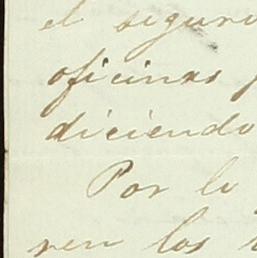 el segun
oficinas
diciendo
Por lo
ren los